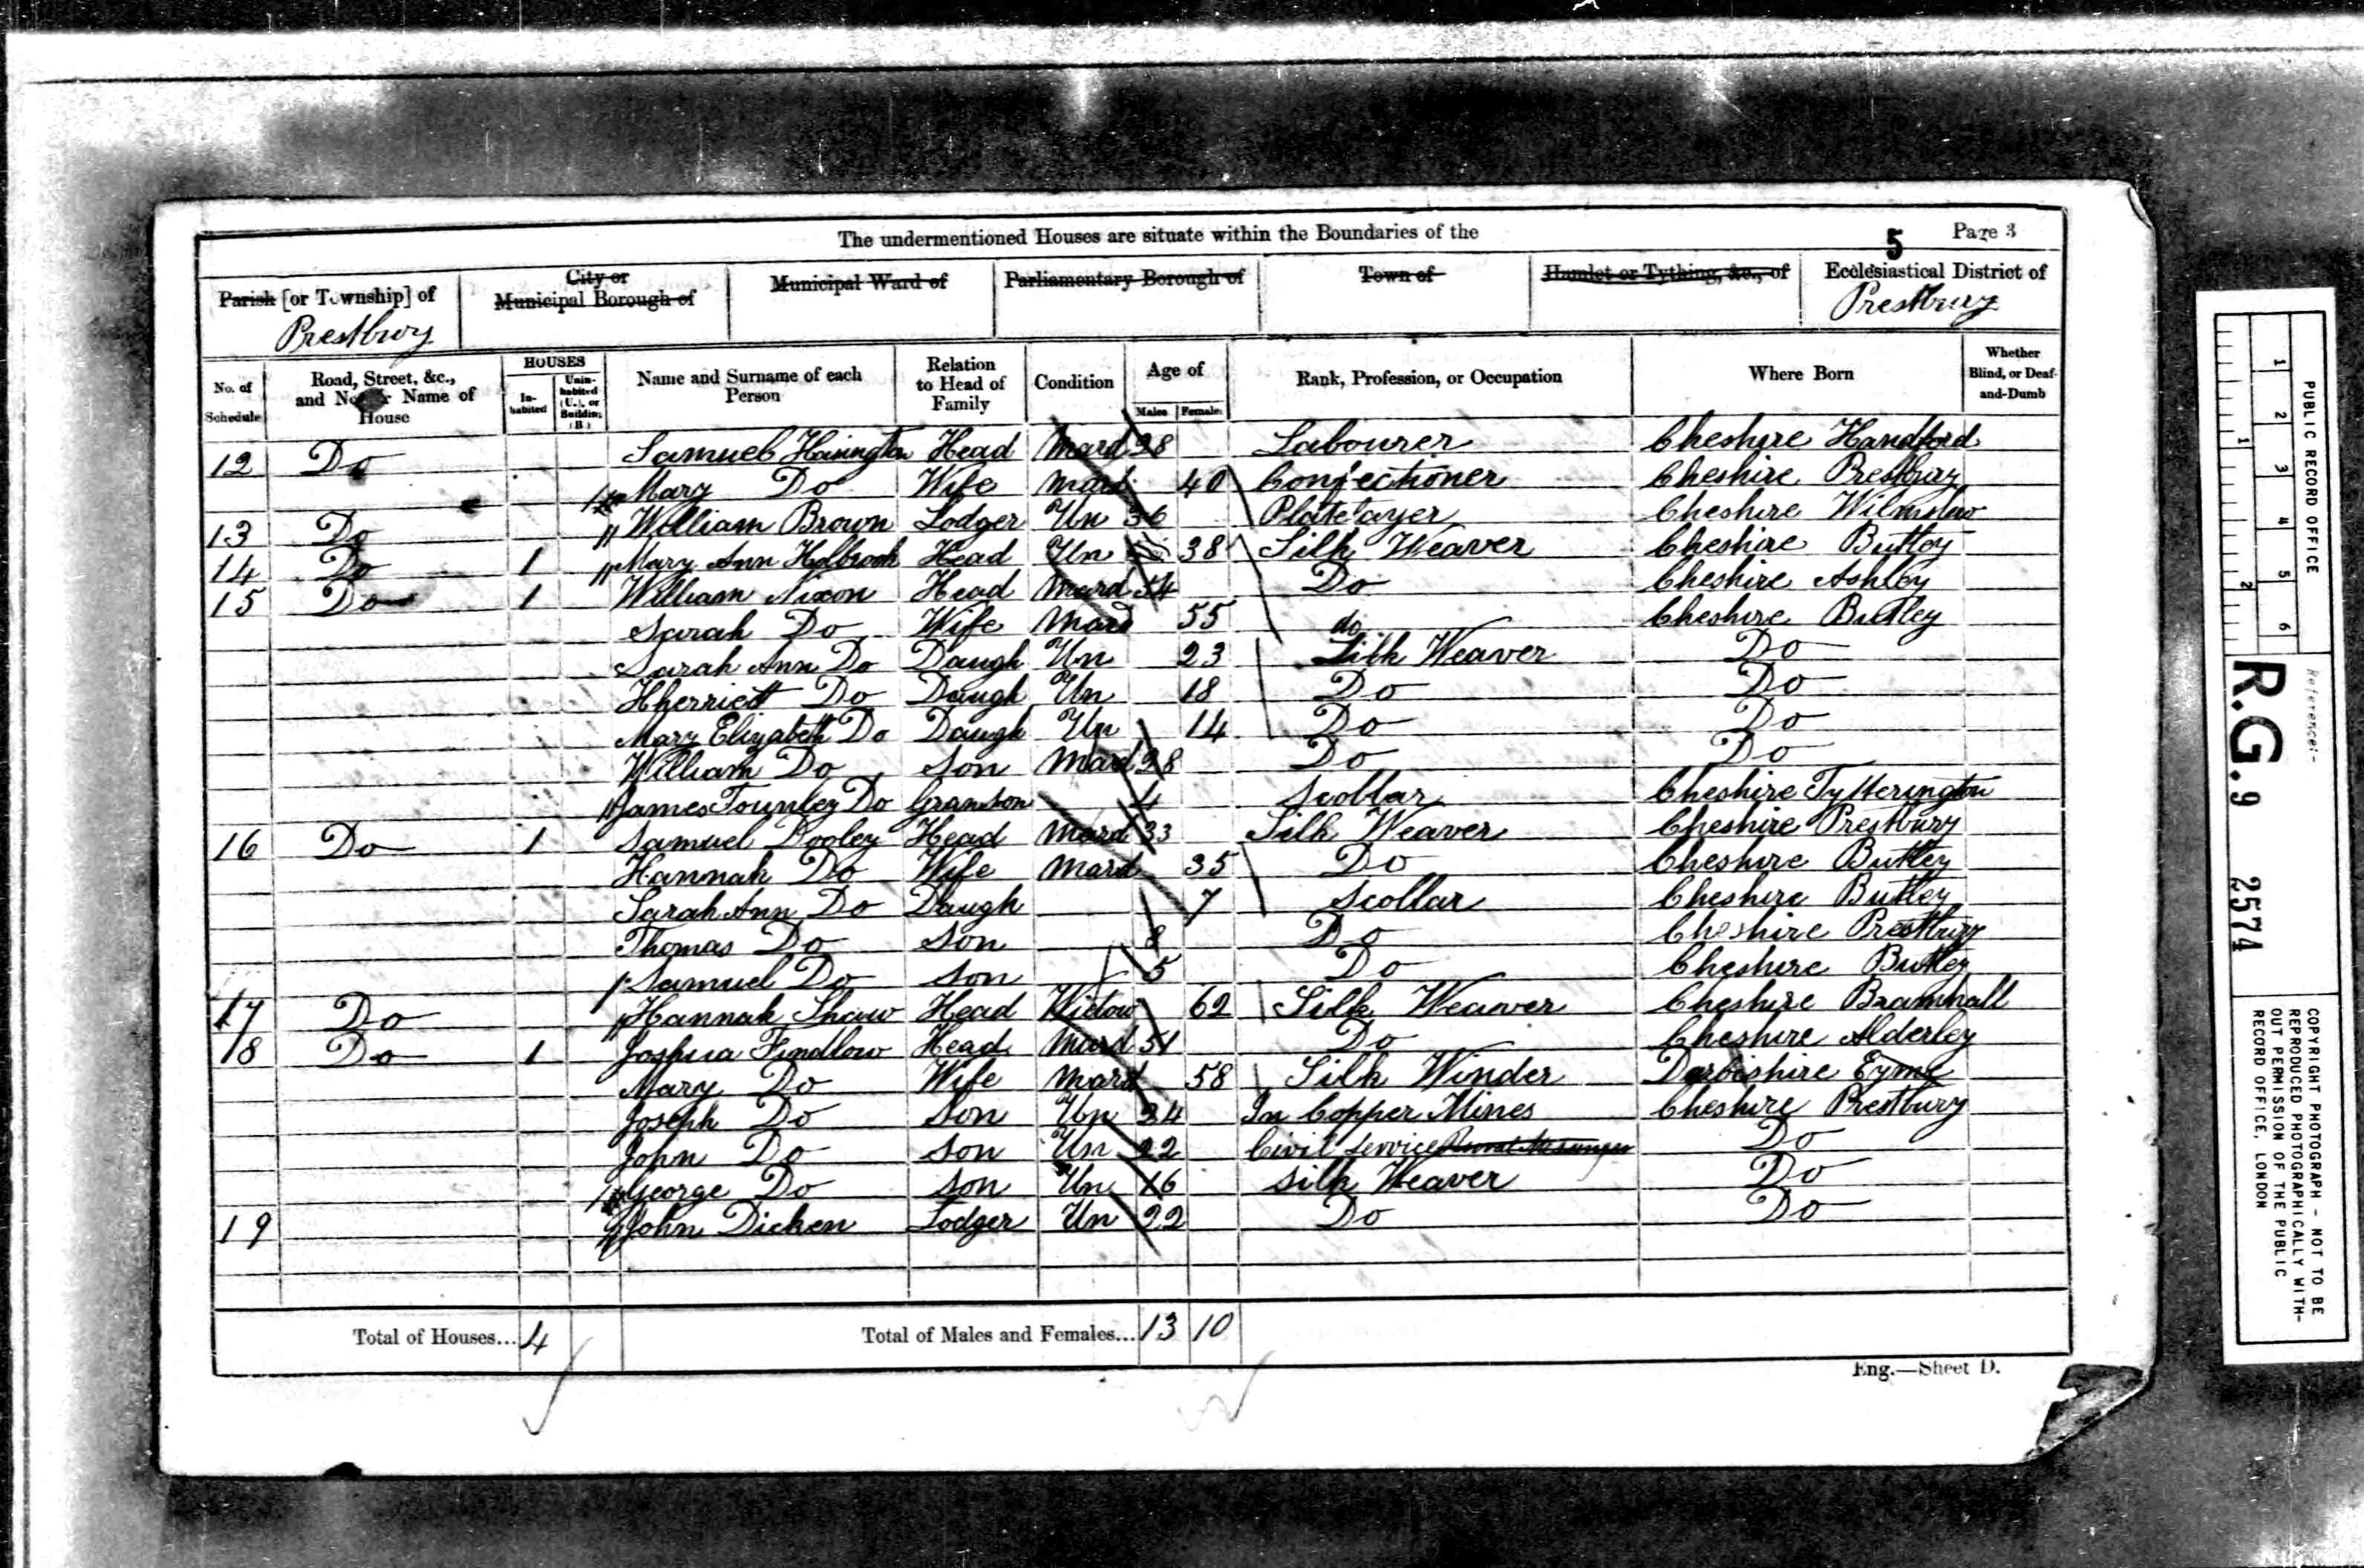 The undermentioned Houses are situate within the Boundaries of the
5
Page 3
Parish [or Township] of
Prestbury
City or
Municipal Borough of
Municipal Ward of
Parliamentary Borough of
Town of
Hamlet or Tything, &c., of
Ecclesiastical District of
Prestbury
No. of Schedule
Road, Street, &c., and No. or Name of House
HOUSES
In-habited
Unin-habited (U.), or Building (B.)
Name and Surname of each Person
Relation to Head of Family
Condition
Age of
Males
Females
Rank, Profession, or Occupation
Where Born
Whether Blind, or Deaf-and-Dumb
12 Do Samuel Head Mard 28 Labourer Cheshire Handford
Mary Do Wife Mard 40 Confectioner Cheshire Prestbury
13 Do William Brown Lodger Un 36 Platelayer Cheshire Wilmslow
14 Do 1 Mary Ann Holbrook Head Un 38 Silk Weaver Cheshire Butley
15 Do 1 William Nixon Head Mard 54 Do Cheshire Ashley
Sarah Do Wife Mard 55 do Cheshire Butley
Sarah Ann Do Daugh Un 23 Silk Weaver Do
Hherriett Do Daugh Un 18 Do Do
Mary Elizabeth Do Daugh Un 14 Do Do
William Do Son Mard 28 Do Do
James Tournley Do Granson 4 Scollar Cheshire Tytterington
16 Do 1 Samuel Dooley Head Mard 33 Silk Weaver Cheshire Prestbury
Hannah Do Wife Mard 35 Do Cheshire Butley
Sarah Ann Do Daugh 7 Scollar Cheshire Butley
Thomas Do Son 8 Do Cheshire Prestbury
Samuel Do Son 5 Do Cheshire Butley
17 Do Hannah Shaw Head Widow 62 Silk Weaver Cheshire Bramhall
18 Do 1 Joshua Findlow Head Mard 51 Do Cheshire Alderley
Mary Do Wife Mard 58 Silk Winder Darbishire Eyme
Joseph Do Son Un 24 In Copper Mines Cheshire Prestbury
John Do Son Un 22 Civil Service Do
George Do Son Un 16 Silk Weaver Do
19 John Dicken Lodger Un 22 Do Do
Total of Houses... 4
Total of Males and Females... 13 10
Eng.—Sheet D.
1 2 3 4 5 6
1 2
PUBLIC RECORD OFFICE
Reference:-
R.G. 9 2574
COPYRIGHT PHOTOGRAPH - NOT TO BE
REPRODUCED PHOTOGRAPHICALLY WITH-
OUT PERMISSION OF THE PUBLIC
RECORD OFFICE, LONDON